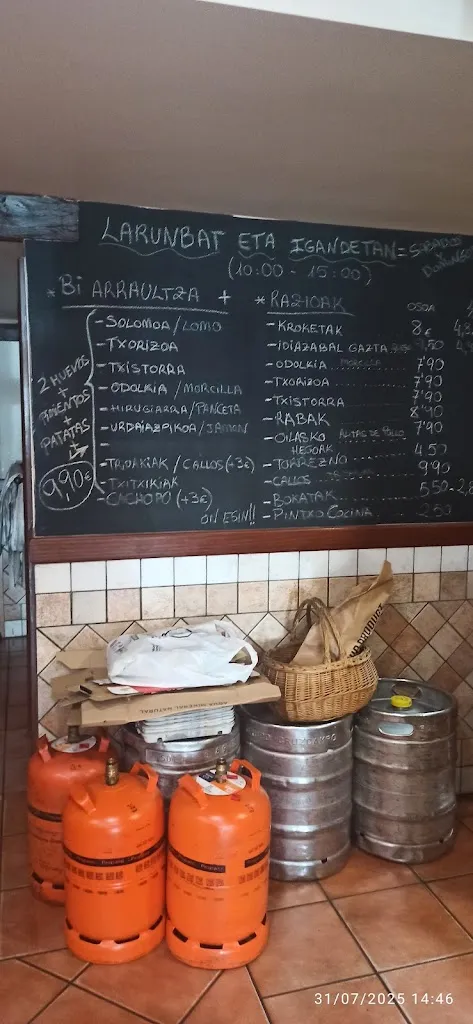 LARUNBAT ETA IGANDETAN = SABADOS Y DOMINGOS
(10:00 - 15:00)
* Bi ARRAULTZA +
2 HUEVOS
+
PIMIENTOS
+
PATATAS
9,90€
- SOLOMOA / LOMO
- TXORIZOA
- TXISTORRA
- ODOLKIA / MORCILLA
- HIRUGIARRA / PANCETA
- URDAIAZPIKOA / JAMON
- TRIPAKIAK / CALLOS (+3€)
- TXITXIKIAK
- CACHOPO (+3€)
ON EGIN!!
* RAZIOAK OSOA
- KROKETAK 8€
- IDIAZABAL GAZTA
- ODOLKIA MORCILLA 7'90
- TXORIZOA 7'90
- TXISTORRA 7'90
- RABAK 8'90
- OILASKO HEGOAK ALITAS DE POLLO 7'90
- TORREZNO 4'50
- CALLOS 9'90
- BOKATAK 5'50
- PINTXO COCINA 2'50
31/07/2025 14:46